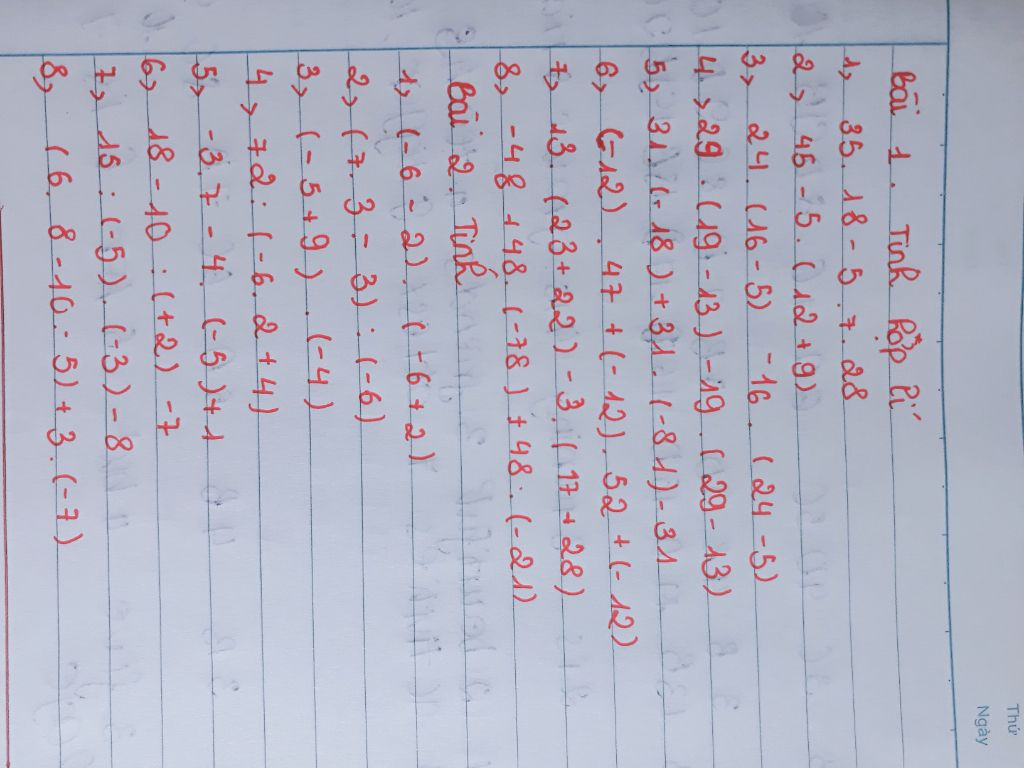 Thứ
Ngày
Bài 1. Tính hợp lí
1, 35. 18 - 5. 7. 28
2, 45 - 5. (12 + 9)
3, 24. (16 - 5) - 16. (24 - 5)
4, 29. (19 - 13) - 19. (29 - 13)
5, 31. (- 18) + 31. (- 81) - 31
6, (-12). 47 + (- 12). 52 + (- 12)
7, 13. (23 + 22) - 3. (17 + 28)
8, -48 + 48. (-78) + 48. (-21)
Bài 2. Tính
1, (- 6 - 2). (- 6 + 2)
2, (7. 3 - 3) : (-6)
3, (- 5 + 9). (-4)
4, 72 : (-6. 2 + 4)
5, -3. 7 - 4. (-5) + 1
6, 18 - 10 : (+2) - 7
7, 15 : (-5). (-3) - 8
8, (6. 8 - 10 : 5) + 3. (-7)